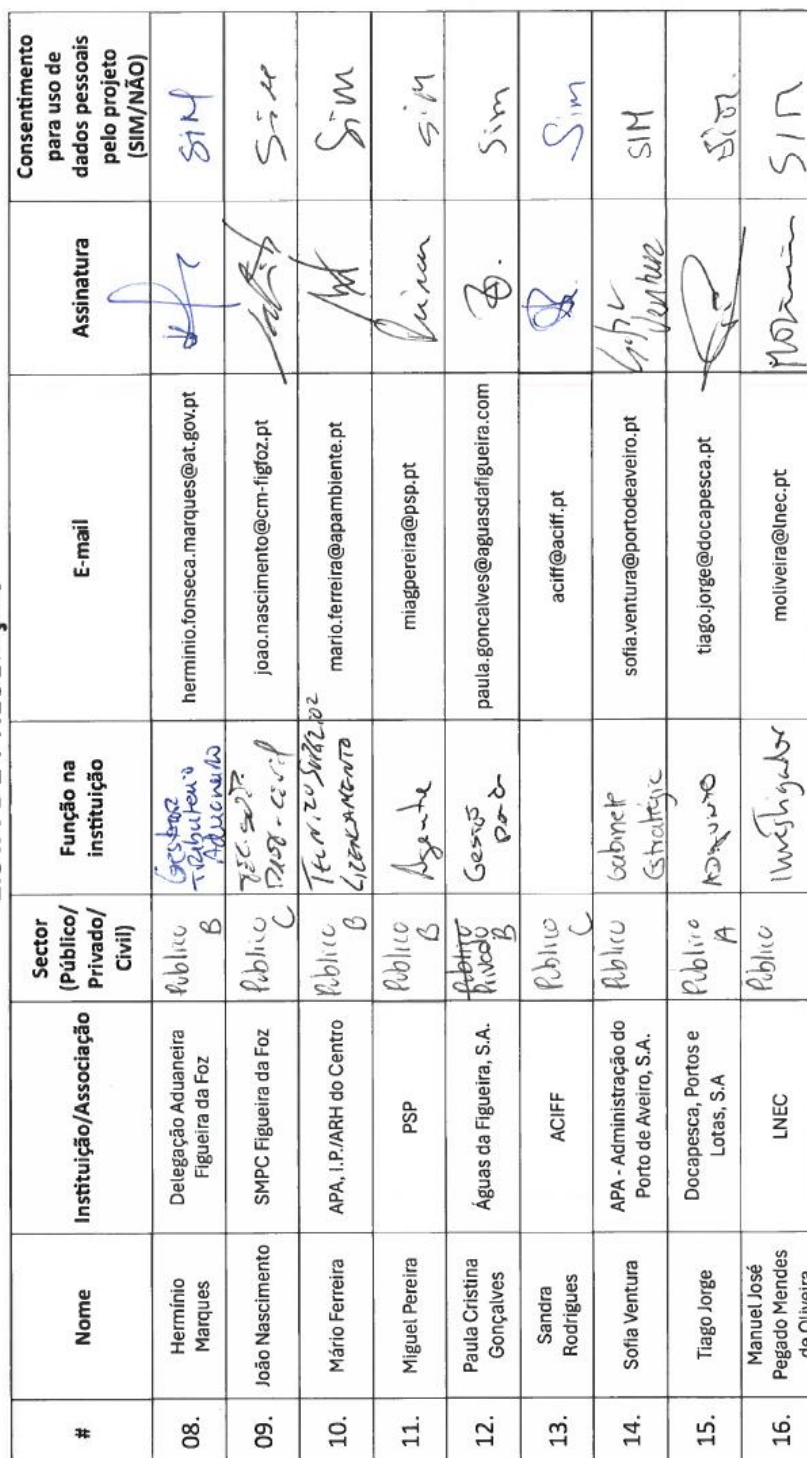 #
Nome
Instituição/Associação
Sector
(Público/
Privado/
Civil)
Função na
instituição
E-mail
Assinatura
Consentimento
para uso de
dados pessoais
pelo projeto
(SIM/NÃO)
08.
Hermínio
Marques
Delegação Aduaneira
Figueira da Foz
Publico
B
Gestor
Tributário
Aduaneiro
herminio.fonseca.marques@at.gov.pt
SIM
09.
João Nascimento
SMPC Figueira da Foz
Publico
C
Téc. Sup.
Prot. Civil
joao.nascimento@cm-figfoz.pt
Sim
10.
Mário Ferreira
APA, I.P./ARH do Centro
Publico
B
LICENCIAMENTO
mario.ferreira@apambiente.pt
Sim
11.
Miguel Pereira
PSP
Publico
B
Agente
miagpereira@psp.pt
SIM
12.
Paula Cristina
Gonçalves
Águas da Figueira, S.A.
Publico
Privado
B
Gestão
paula.goncalves@aguasdafigueira.com
Sim
13.
Sandra
Rodrigues
ACIFF
Publico
C
aciff@aciff.pt
Sim
14.
Sofia Ventura
APA - Administração do
Porto de Aveiro, S.A.
Publico
Gabinete
Estratégic
sofia.ventura@portodeaveiro.pt
Sofia
Ventura
SIM
15.
Tiago Jorge
Docapesca, Portos e
Lotas, S.A
Publico
A
ADJUNTO
tiago.jorge@docapesca.pt
Sim
16.
Manuel José
Pegado Mendes
de Oliveira
LNEC
Publico
Investigador
moliveira@lnec.pt
MOliveira
SIM